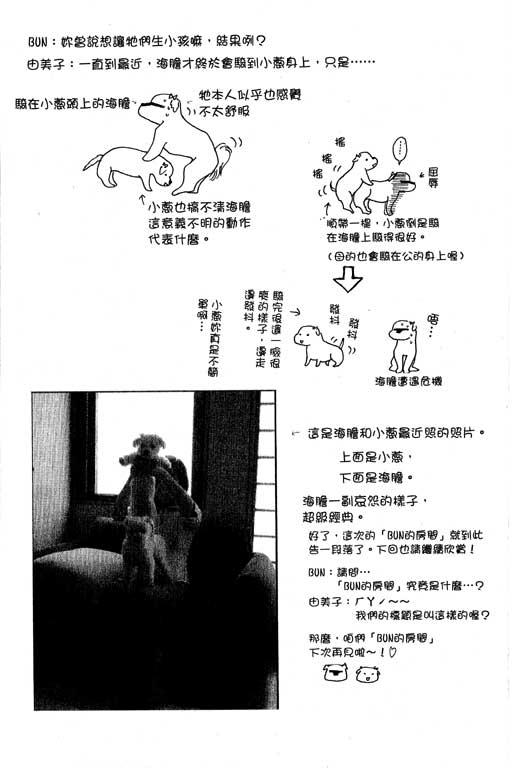 BUN：妳曾說想讓牠們生小孩嘛，結果咧？
由美子：一直到最近，海膽才終於會騎到小蔥身上，只是⋯⋯
騎在小蔥頭上的海膽
牠本人似乎也感覺
不太舒服
小蔥也搞不清海膽
這意義不明的動作
代表什麼。
搖
搖
搖
⋯⋯
屈辱
順帶一提，小蔥倒是騎
在海膽上騎得很好。
（母的也會騎在公的身上喔）
騎完後這一臉很
爽的樣子，邊走
邊發抖。
小蔥妳真是不簡
單啊⋯
發抖
發抖
唔⋯
海膽遭遇危機
這是海膽和小蔥最近照的照片。
上面是小蔥，
下面是海膽。
海膽一副哀怨的樣子，
超級經典。
好了，這次的「BUN的房間」就到此
告一段落了。下回也請繼續欣賞！
BUN：請問⋯
「BUN的房間」究竟是什麼⋯？
由美子：ㄏㄚˊ～～
我們的標題是叫這樣的喔？
那麼，咱們「BUN的房間」
下次再見啦～！♡